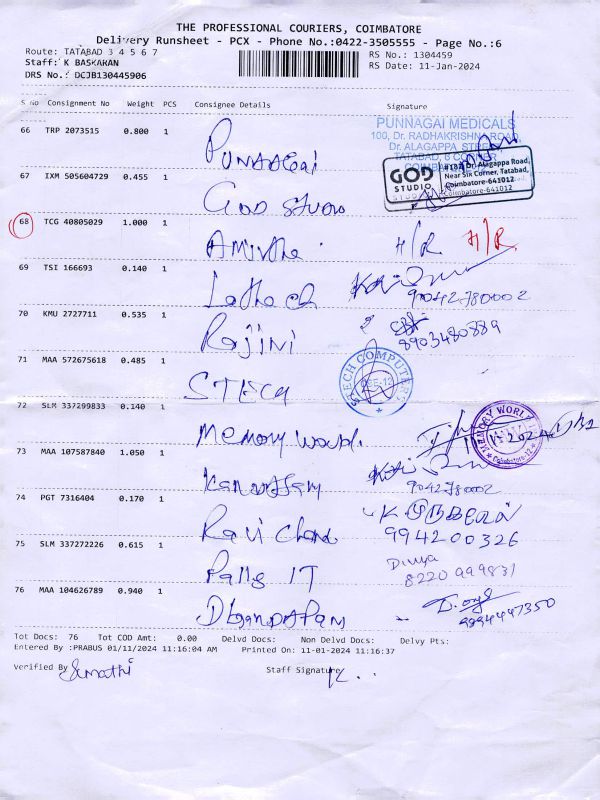 THE PROFESSIONAL COURIERS, COIMBATORE
Delivery Runsheet - PCX - Phone No.:0422-3505555 - Page No.:6
Route: TATABAD 3 4 5 6 7
RS No.: 1304459
Staff: K BASKARAN
RS Date: 11-Jan-2024
DRS No.: DCJB130445906
S No Consignment No Weight PCS Consignee Details Signature
66 TRP 2073515 0.800 1
PUNNAGAI MEDICALS
100, Dr. RADHAKRISHNA ROAD,
Dr. ALAGAPPA STREET,
TATABAD, 6 CORNER
Punnagai
67 IXM 505604729 0.455 1
GOD STUDIO
#182 Dr. Alagappa Road,
Near Six Corner, Tatabad,
Coimbatore-641012
God Studio
68 TCG 40805029 1.000 1
Amirtha H/R H/R
69 TSI 166693 0.140 1
Latha
9042780002
70 KMU 2727711 0.535 1
Rajini 8903480889
71 MAA 572675618 0.485 1
STECH
STECH COMPUTERS
CBE-12
72 SLM 337299833 0.140 1
Memory World
MEMORY WORLD
Coimbatore-12
73 MAA 107587840 1.050 1
9042780002
74 PGT 7316404 0.170 1
Ravi Chand
994200326
75 SLM 337272226 0.615 1
Palls IT Divya
8220999831
76 MAA 104626789 0.940 1
Dhandapani
9994447350
Tot Docs: 76 Tot COD Amt: 0.00 Delvd Docs: Non Delvd Docs: Delvy Pts:
Entered By :PRABUS 01/11/2024 11:16:04 AM Printed On: 11-01-2024 11:16:37
Verified By Sumathi Staff Signature